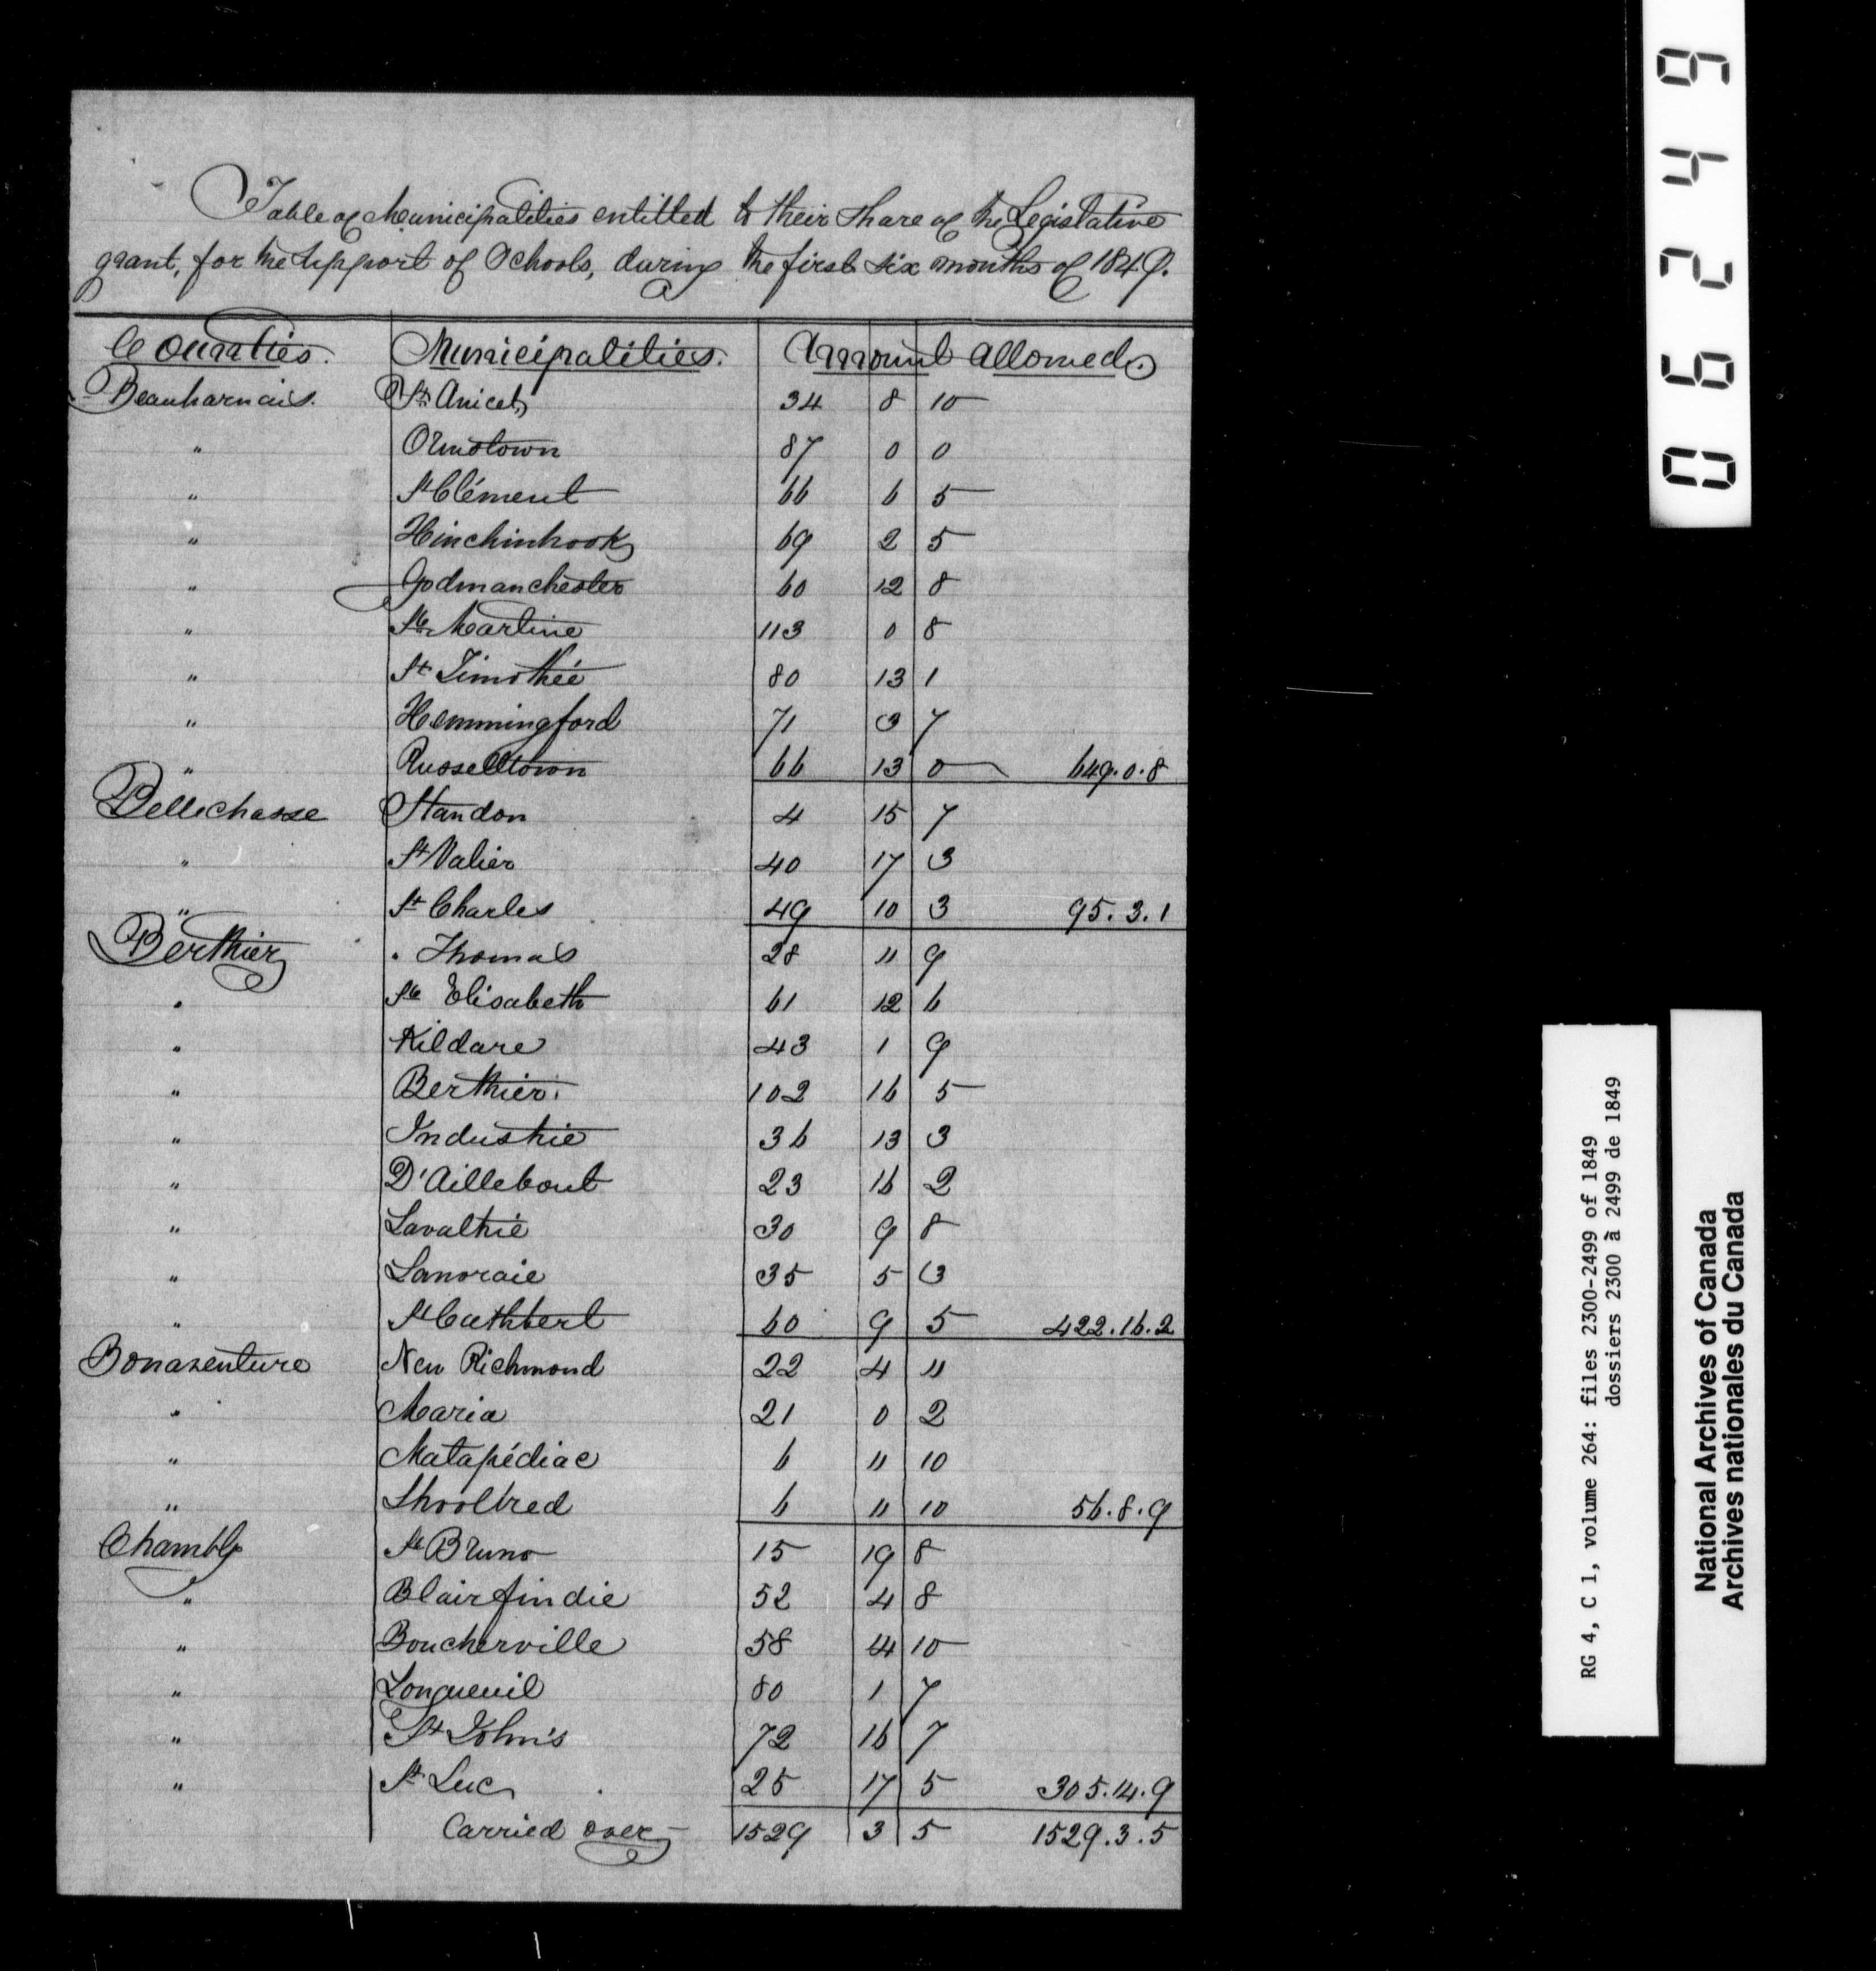 Table of Municipalities entitled to their share of the Legislative
grant, for the support of Schools, during the first six months of 1849.
Counties. Municipalities. Amount allowed.
Beauharnais. St Anicet 34 8 10
" Ormstown 87 0 0
" St Clément 66 6 5
" Hinchinbrook 69 2 5
" Godmanchester 60 12 8
" Ste Martine 113 0 8
" St Timothée 80 13 1
" Hemmingford 71 3 7
" Russelltown 66 13 0 649.0.8
Bellechasse Standon 4 15 7
" St Valier 40 17 3
" St Charles 49 10 3 95.3.1
Berthier " Thomas 28 11 9
" Ste Elisabeth 61 12 6
" Kildare 43 1 9
" Berthier. 102 16 5
" Industrie 36 13 3
" D'Aillebout 23 16 2
" Lavaltrie 30 9 8
" Lanoraie 35 5 3
" St Cuthbert 60 9 5 422.16.2
Bonaventure New Richmond 22 4 11
" Maria 21 0 2
" Matapédiac 6 11 10
" Shoolbred 6 11 10 56.8.9
Chambly St Bruno 15 19 8
" Blairfindie 52 4 8
" Boucherville 58 14 10
" Longueuil 80 1 7
" St John's 72 16 7
" St Luc 25 17 5 305.14.9
Carried over 1529 3 5 1529.3.5
062449
RG 4, C 1, volume 264: files 2300-2499 of 1849
dossiers 2300 à 2499 de 1849
National Archives of Canada
Archives nationales du Canada